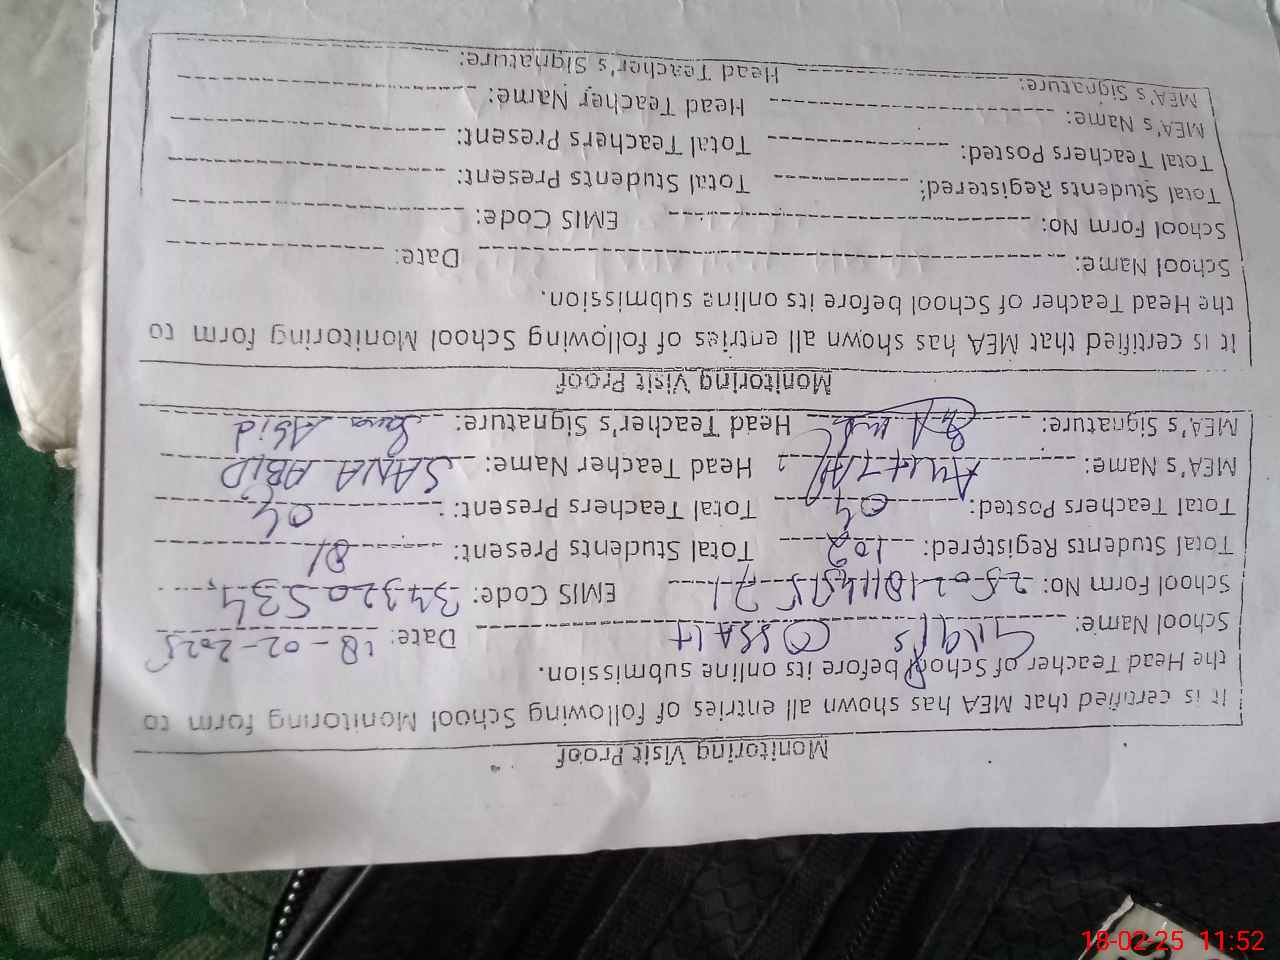 Monitoring Visit Proof
It is certified that MEA has shown all entries of following School Monitoring form to
the Head Teacher of School before its online submission.
School Name: Date: 18-02-2025
School Form No: EMIS Code: 34320534
Total Students Registered: 102 Total Students Present: 81
Total Teachers Posted: 04 Total Teachers Present: 04
MEA's Name: Head Teacher Name: SANA ABID
MEA's Signature: Head Teacher's Signature: Sana Abid
Monitoring Visit Proof
It is certified that MEA has shown all entries of following School Monitoring form to
the Head Teacher of School before its online submission.
School Name: Date:
School Form No: EMIS Code:
Total Students Registered: Total Students Present:
Total Teachers Posted: Total Teachers Present:
MEA's Name: Head Teacher Name:
MEA's Signature: Head Teacher's Signature:
18-02-25 11:52